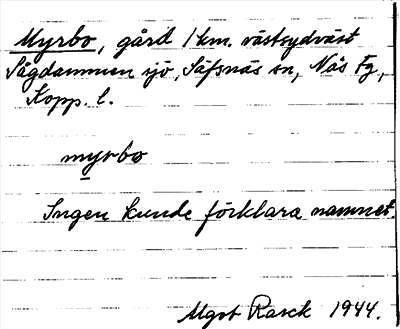 Myrbo, gård 1 km. västsydväst
Sågdammen sjö, Säfsnäs sn, Näs Fg,
Kopp. l.
myrbo
Ingen kunde förklara namnet.
Mgot Rasck 1944.